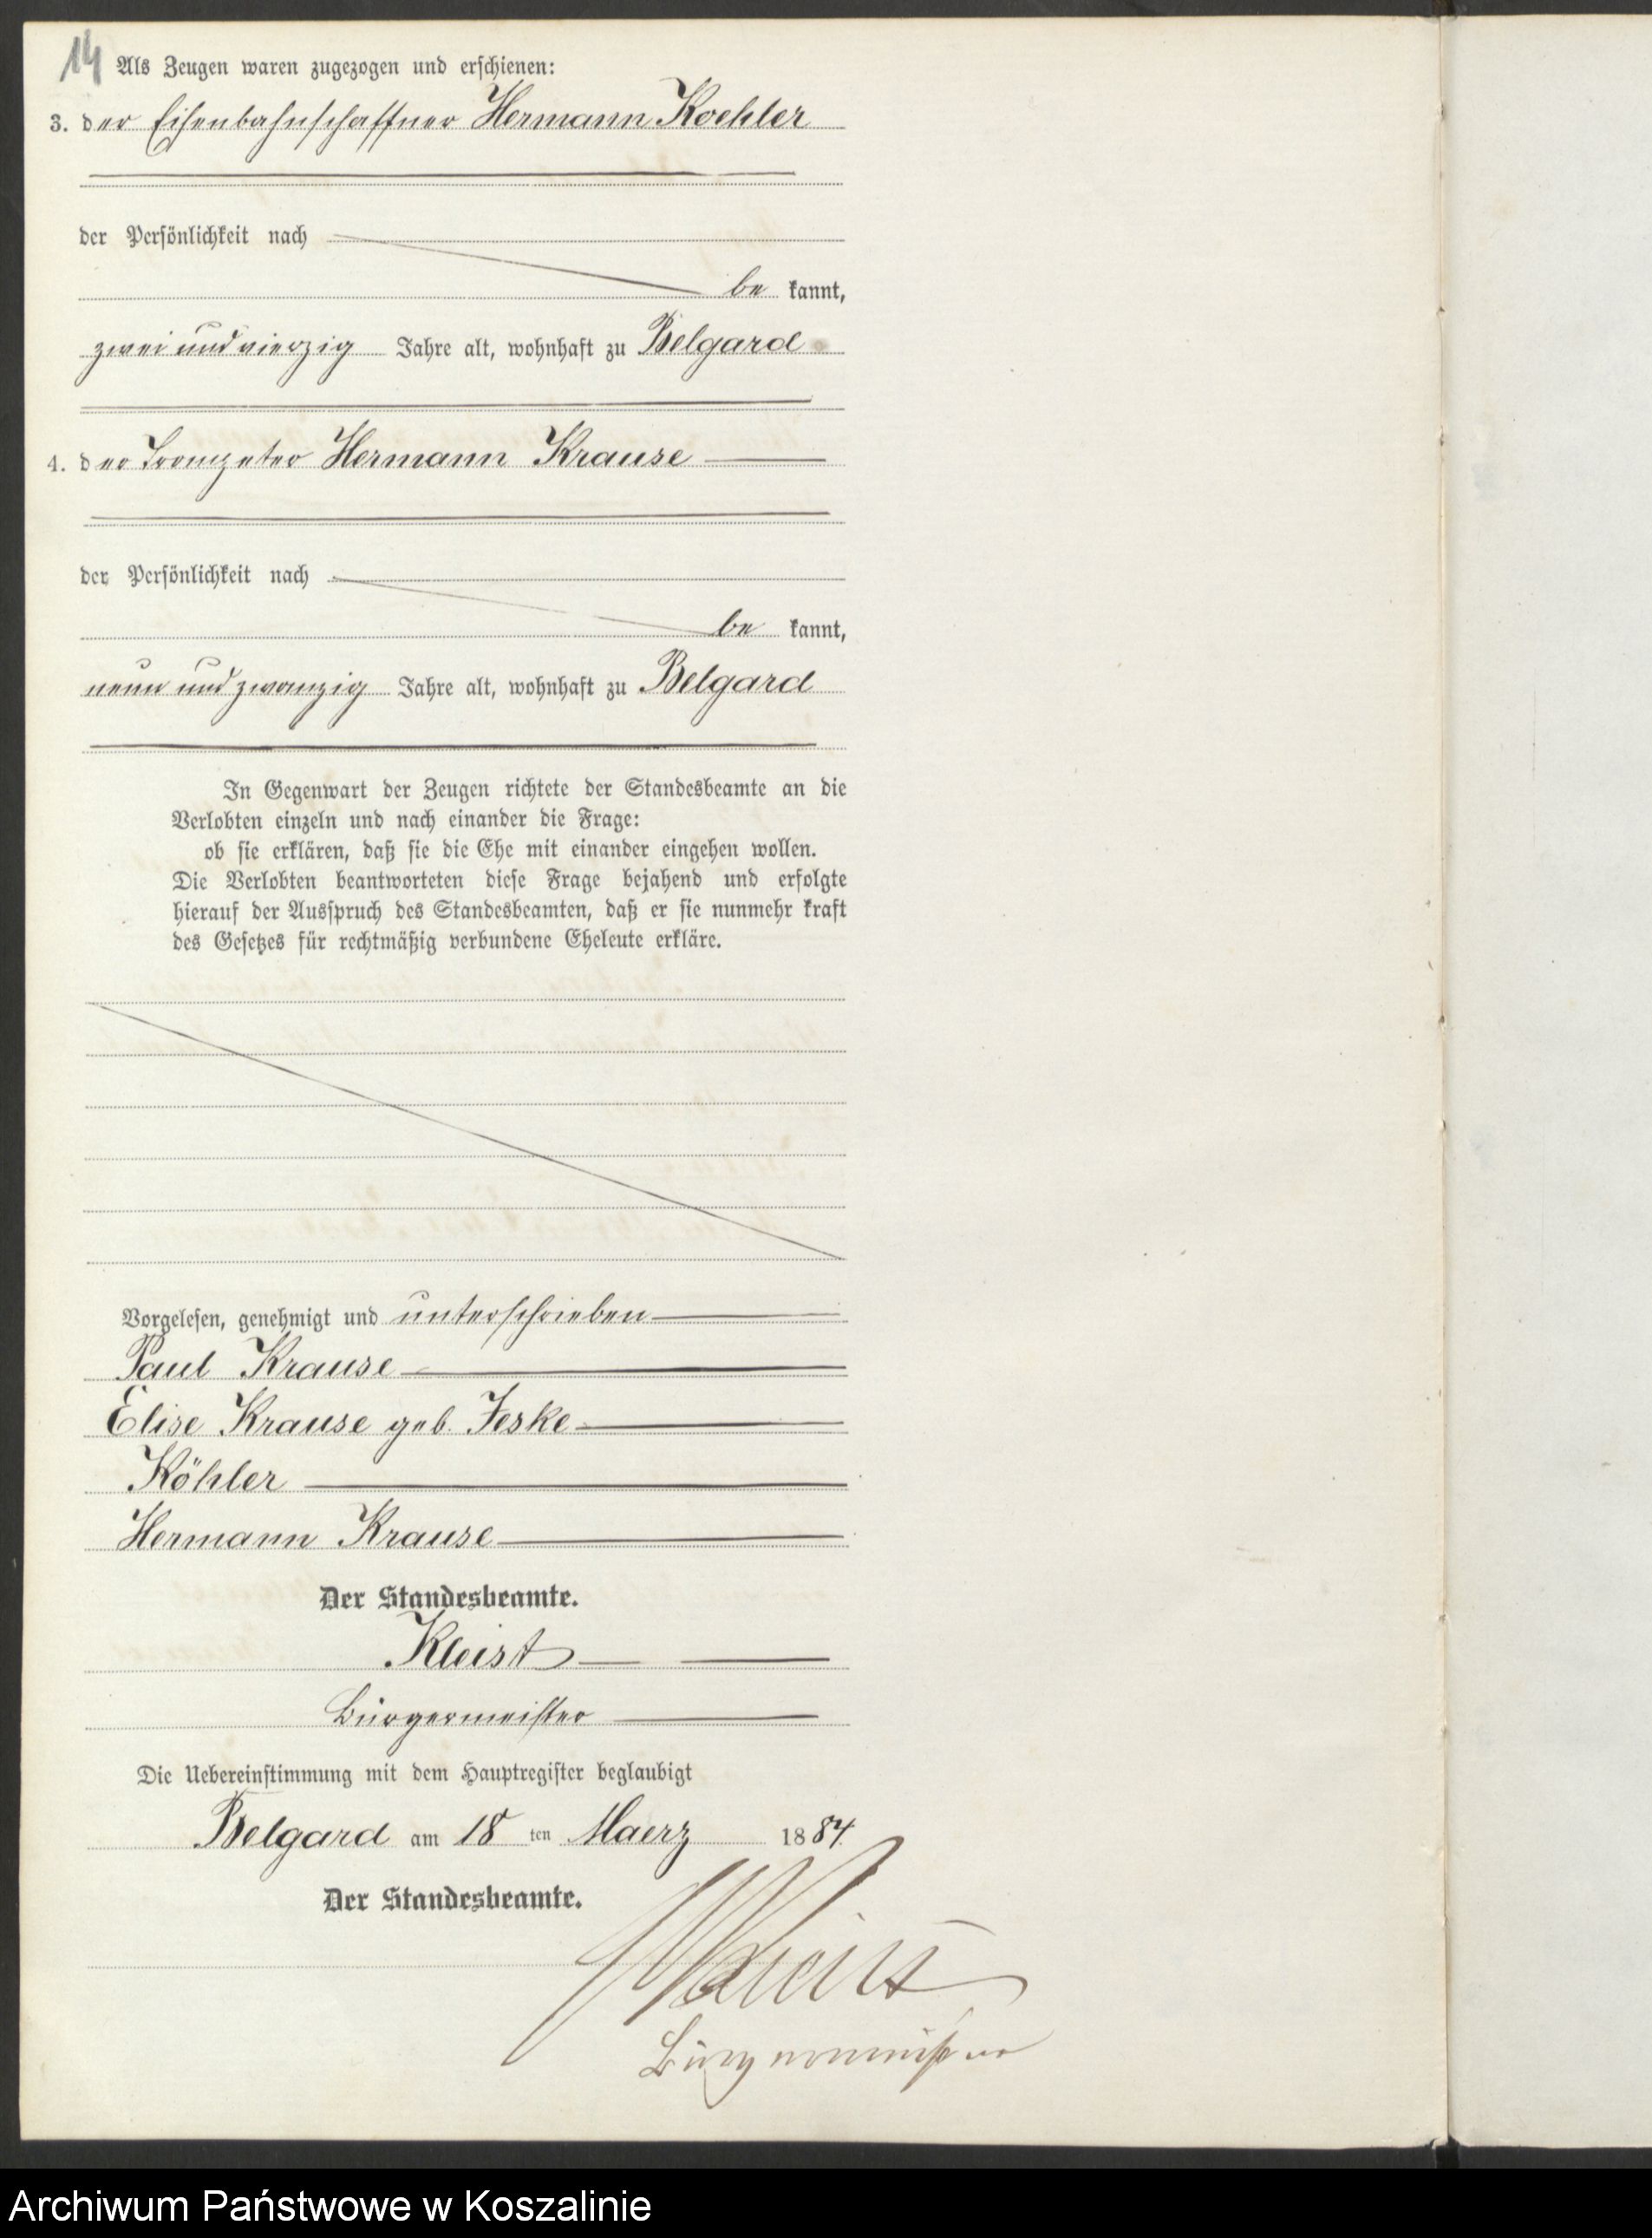 14
Als Zeugen waren zugezogen und erschienen:
3. der Eisenbahnschaffner Hermann Koehler
der Persönlichkeit nach
be kannt,
zwei und vierzig Jahre alt, wohnhaft zu Belgard
4. der Trompeter Hermann Krause
der Persönlichkeit nach
be kannt,
neun und zwanzig Jahre alt, wohnhaft zu Belgard
In Gegenwart der Zeugen richtete der Standesbeamte an die
Verlobten einzeln und nach einander die Frage:
ob sie erklären, daß sie die Ehe mit einander eingehen wollen.
Die Verlobten beantworteten diese Frage bejahend und erfolgte
hierauf der Ausspruch des Standesbeamten, daß er sie nunmehr kraft
des Gesetzes für rechtmäßig verbundene Eheleute erkläre.
Vorgelesen, genehmigt und unterschrieben
Paul Krause
Elise Krause geb. Jeske
Köhler
Hermann Krause
Der Standesbeamte.
Kleist
Bürgermeister
Die Uebereinstimmung mit dem Hauptregister beglaubigt
Belgard am 18 ten Maerz 1884.
Der Standesbeamte.
Kleist
Bürgermeister
Archiwum Państwowe w Koszalinie